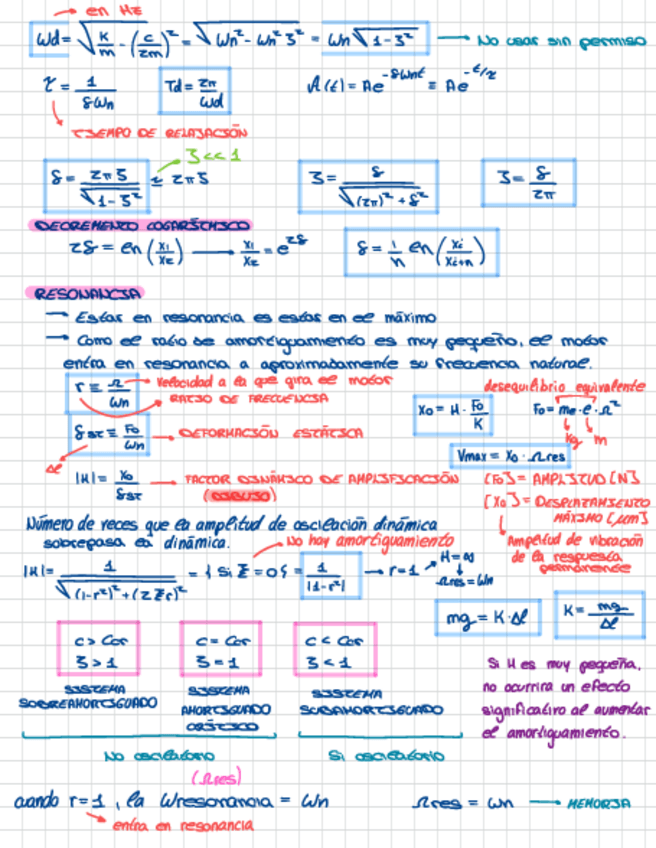 en Hz
Wd = √(K/m - (c/2m)²) = √(Wn² - Wn² ζ²) = Wn √(1-ζ²) → No usar sin permiso
τ = 1/(δWn) Td = 2π/Wd A(t) = Ae^(-δWnt) ≡ Ae^(-t/τ)
TIEMPO DE RELAJACIÓN
ζ<<1
δ = 2πζ/√(1-ζ²) ≃ 2πζ ζ = δ/√((2π)²+δ²) ζ = δ/2π
DECREMENTO LOGARÍTMICO
2δ = ln(x₁/x₂) → x₁/x₂ = e^(2δ) δ = 1/n ln(xi/xi+n)
RESONANCIA
→ Estar en resonancia es estar en el máximo
→ Como el ratio de amortiguamiento es muy pequeño, el motor
entra en resonancia a aproximadamente su frecuencia natural.
r ≡ Ω/Wn → Velocidad a la que gira el motor
RATIO DE FRECUENCIA
desequilibrio equivalente
X₀ = H · F₀/K F₀ = me · e · Ω²
kg m
δst ≡ F₀/Wn → DEFORMACIÓN ESTÁTICA
Δl
Vmax = X₀ · Ωres
|H| = X₀/δst → FACTOR DINÁMICO DE AMPLIFICACIÓN
(DIBUJO)
[F₀] = AMPLITUD [N]
[X₀] = DESPLAZAMIENTO
MÁXIMO [µm]
Amplitud de vibración
de la respuesta
permanente
Número de veces que la amplitud de oscilación dinámica
sobrepasa la dinámica.
No hay amortiguamiento
|H| = 1/√((1-r²)²+(2ξr)²) = {si ξ=0} = 1/|1-r²| → r=1 H=∞
Ωres = Wn
mg = K·Δl K = mg/Δl
c > Ccr c = Ccr c < Ccr
ζ > 1 ζ = 1 ζ < 1
SISTEMA SOBREAMORTIGUADO
SISTEMA AMORTIGUADO CRÍTICO
SISTEMA SUBAMORTIGUADO
Si H es muy pequeña,
no ocurrira un efecto
significativo al aumentar
el amortiguamiento.
No oscilatorio Si oscilatorio
(Ωres)
cuando r=1, la Wresonancia = Wn Ωres = Wn → MEMORIA
entra en resonancia